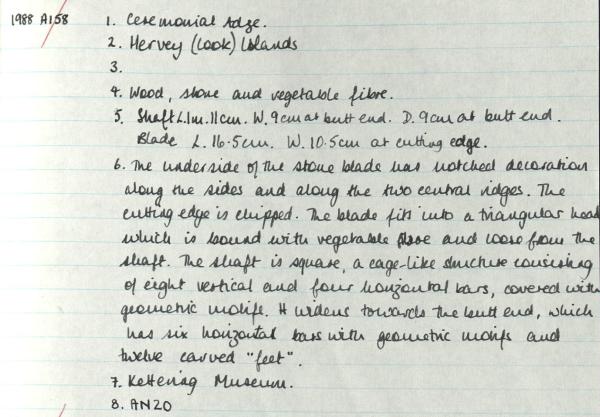 1988 A158 1. Ceremonial Adze.
2. Hervey (Cook) Islands
3.
4. Wood, stone and vegetable fibre.
5. Shaft L.1m.11cm. W. 9cm at butt end. D. 9cm at butt end.
Blade L. 16.5cm. W. 10.5cm at cutting edge.
6. The underside of the stone blade has notched decoration
along the sides and along the two central ridges. The
cutting edge is chipped. The blade fits into a triangular head
which is bound with vegetable fibre and loose from the
shaft. The shaft is square, a cage-like structure consisting
of eight vertical and four horizontal bars, covered with
geometric motifs. It widens towards the butt end, which
has six horizontal bars with geometric motifs and
twelve carved "feet".
7. Kettering Museum.
8. AN20